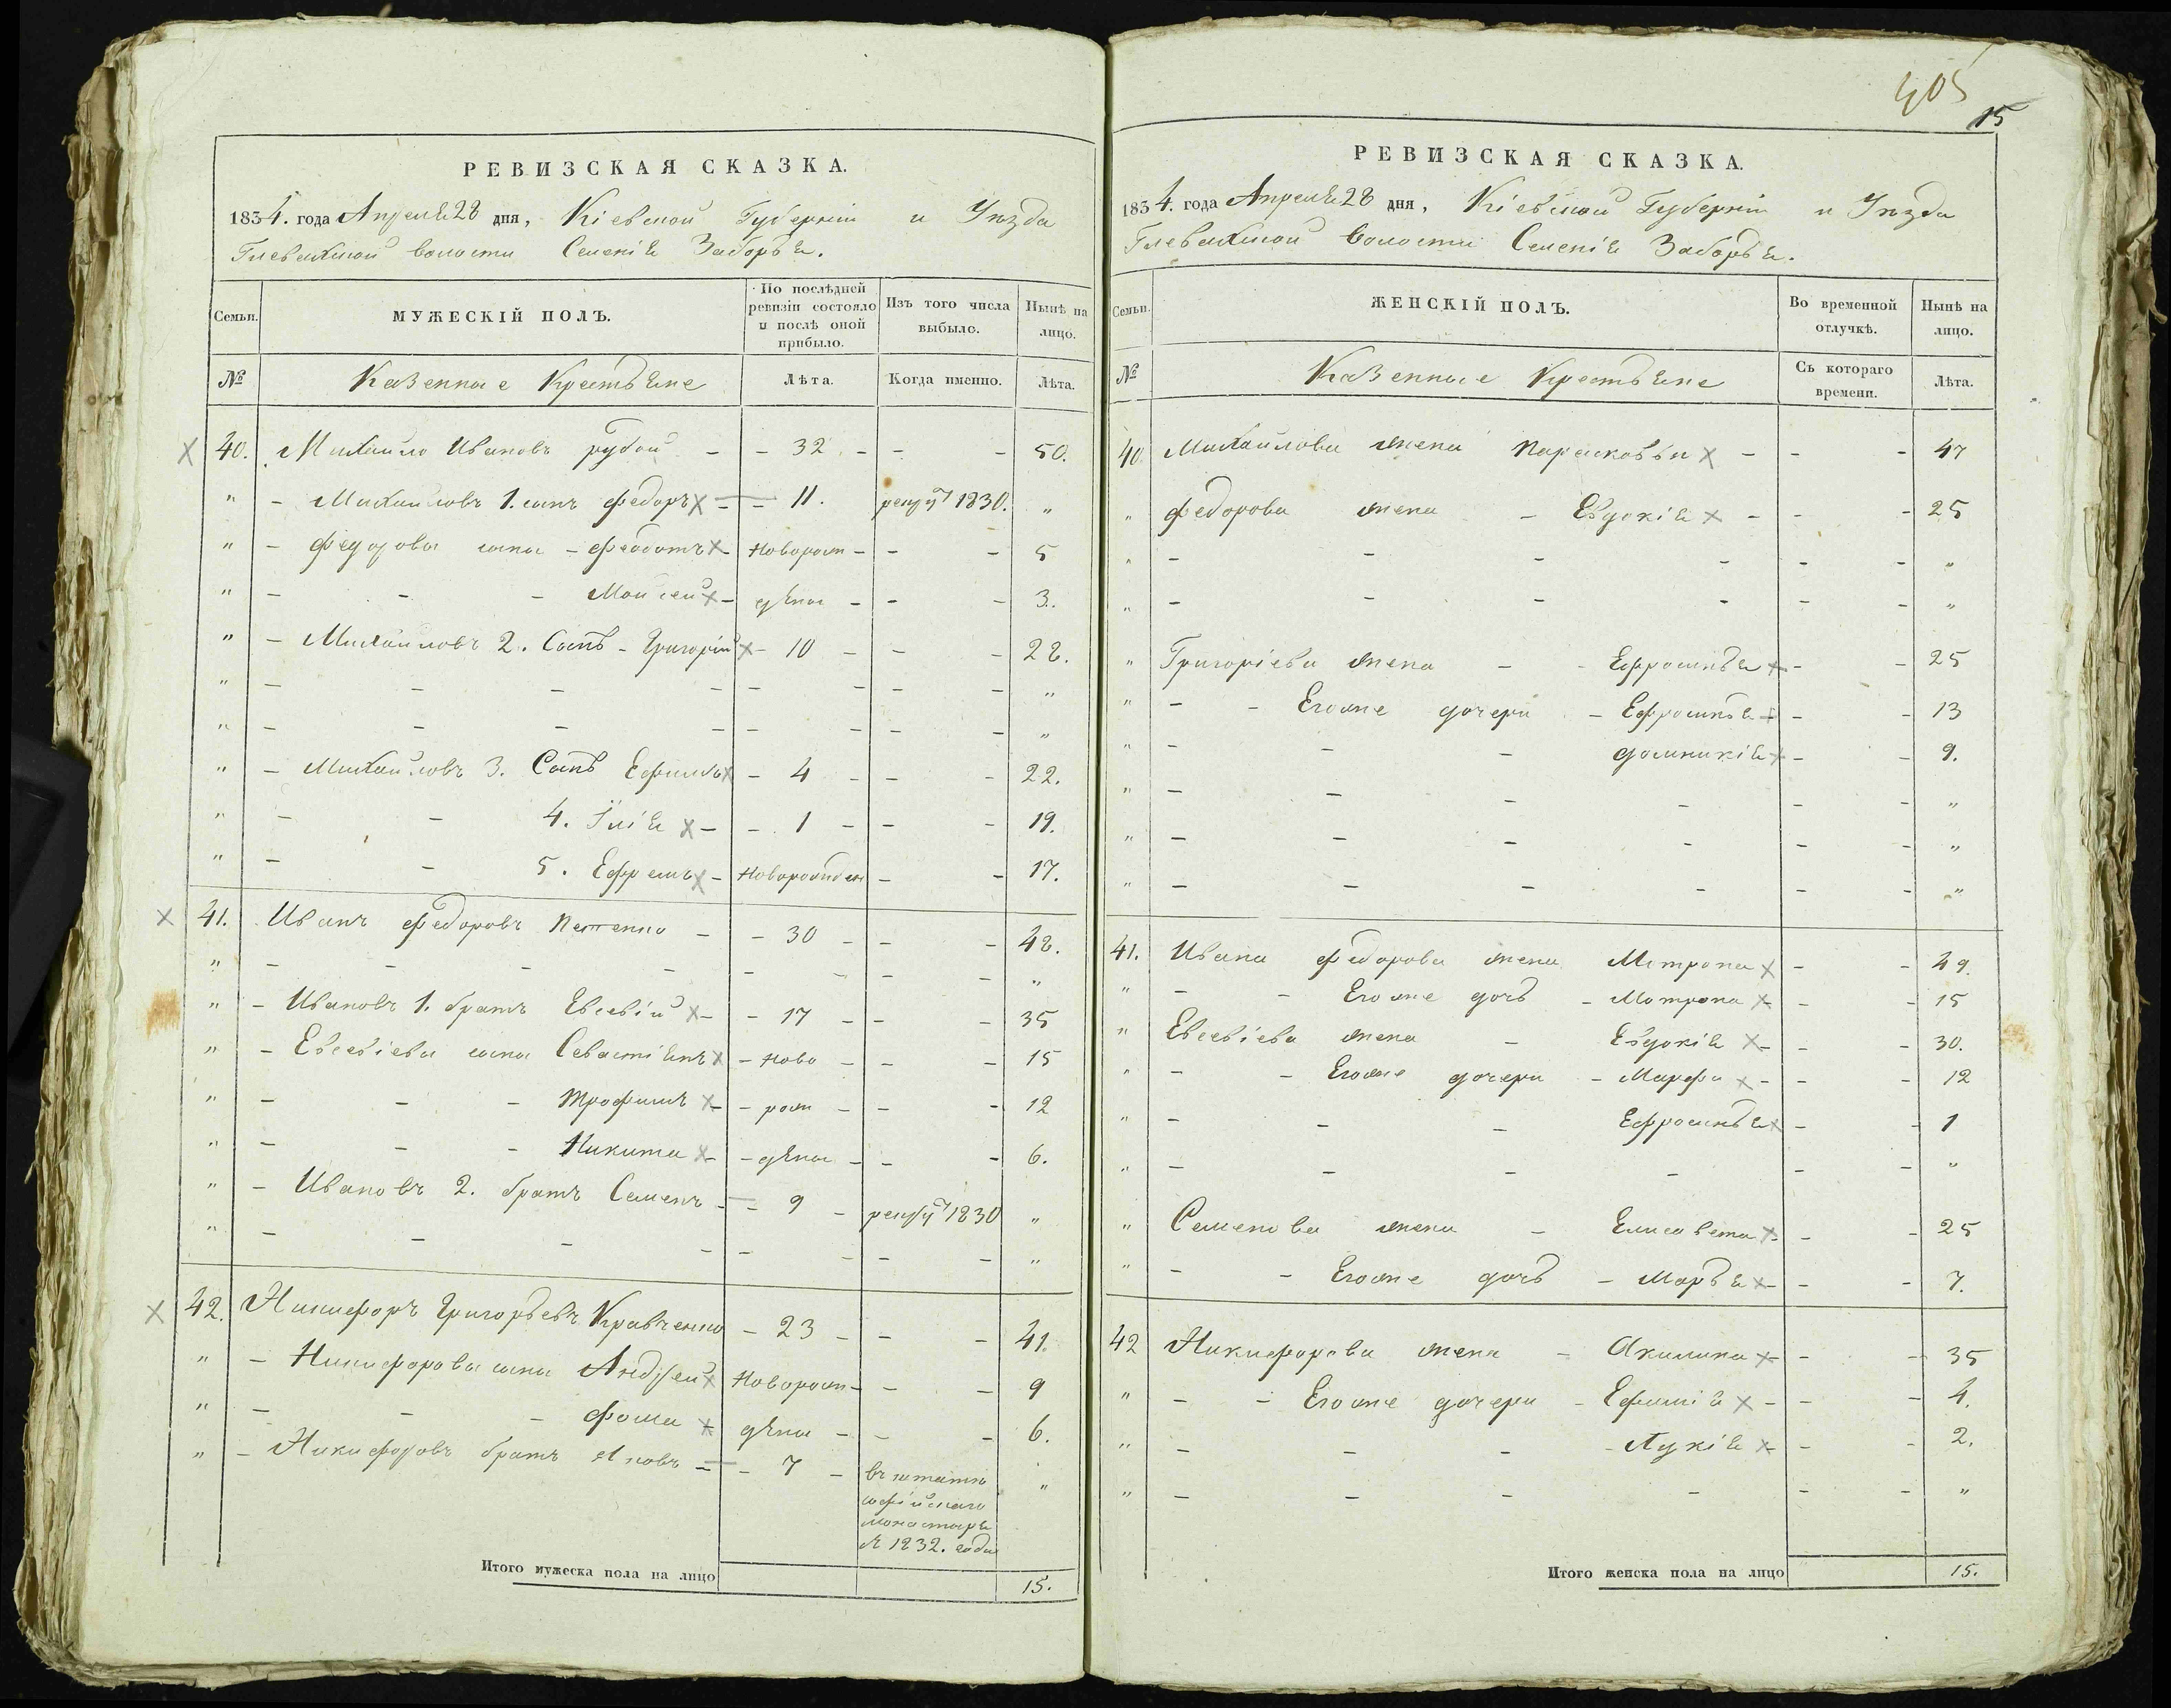 РЕВИЗСКАЯ СКАЗКА.
1834. года Апреля 28 дня, Кіевской Губерніи и Уезда
Глевахской волости Селенія Заборья.
Семьи.
МУЖЕСКІЙ ПОЛЪ.
По послѣдней ревизіи состояло и послѣ оной прибыло.
Изъ того числа выбыло.
Нынѣ на лицо.
№
Казенные Крестьяне
Лѣта.
Когда именно.
Лѣта.
40. Михайло Ивановъ рубой - - 32 - - - 50.
" - Михайловъ 1. сынъ федоръ - - 11. 1830. "
" - федоровы сыны - феодотъ - Новорож - - - 5
" - - - Мойсей - дѣны - - - 3.
" - Михайловъ 2. Сынъ - Григорій - 10 - - - 28.
" - - - - - - - - "
" - - - - - - - - "
" - Михайловъ 3. Сынъ Ефимъ - 4 - - - 22.
" - - 4. Ілія - - 1 - - - 19.
" - - 5. Ефремъ - Новорожден - - 17.
41. Иванъ федоровъ - - 30 - - - 48.
" - - - - - - - - "
" - Ивановъ 1. братъ Евсевій - - 17 - - - 35
" - Евсевіевы сыны Севастіянъ - Ново - - - 15
" - - - Трофимъ - - рож - - - 12
" - - - Никита - - дѣны - - - 6.
" - Ивановъ 2. братъ Семенъ - - 9 - 1830 "
" - - - - - - - - "
42. Никифоръ Григорьевъ Кравченко - 23 - - - 41.
" - Никифоровы сыны Андрей Новорож - - - 9
" - - - фома - дѣны - - - 6.
" - Никифоровъ братъ Яковъ - - 7 - въ штатн. "
софійскаго
монастыря
1832. года
Итого мужеска пола на лицо 15.
405
15
РЕВИЗСКАЯ СКАЗКА.
1834. года Апреля 28 дня, Кіевской Губерніи и Уезда
Глевахской волости Селенія Заборья.
Семьи.
ЖЕНСКІЙ ПОЛЪ.
Во временной отлучкѣ.
Нынѣ на лицо.
№
Казенные Крестьяне
Съ котораго времени.
Лѣта.
40. Михайлова жена Парасковья - - - 47
" федорова жена - Евдокія - - - 25
" - - - - - - "
" - - - - - - "
" Григоріева жена - - Ефросинья - - 25
" - - Егоже дочери - Ефросинья - - 13
" - - - домникія - - 9.
" - - - - - - "
" - - - - - - "
" - - - - - - "
41. Ивана федорова жена Мотрона - - 49.
" - - Егоже дочь - Мотрона - - 15
" Евсевіева жена - Евдокія - - - 30.
" - - Егоже дочери - Марфа - - - 12
" - - - Ефросинья - - 1
" - - - - - - "
" Семенова жена - Елисавета - - - 25
" - - Егоже дочь - Марья - - - 7.
42 Никифорова жена - Акилина - - - 35
" - - Егоже дочери - Ефимія - - - 4.
" - - - - Лукія - - - 2.
" - - - - - - "
Итого женска пола на лицо 15.